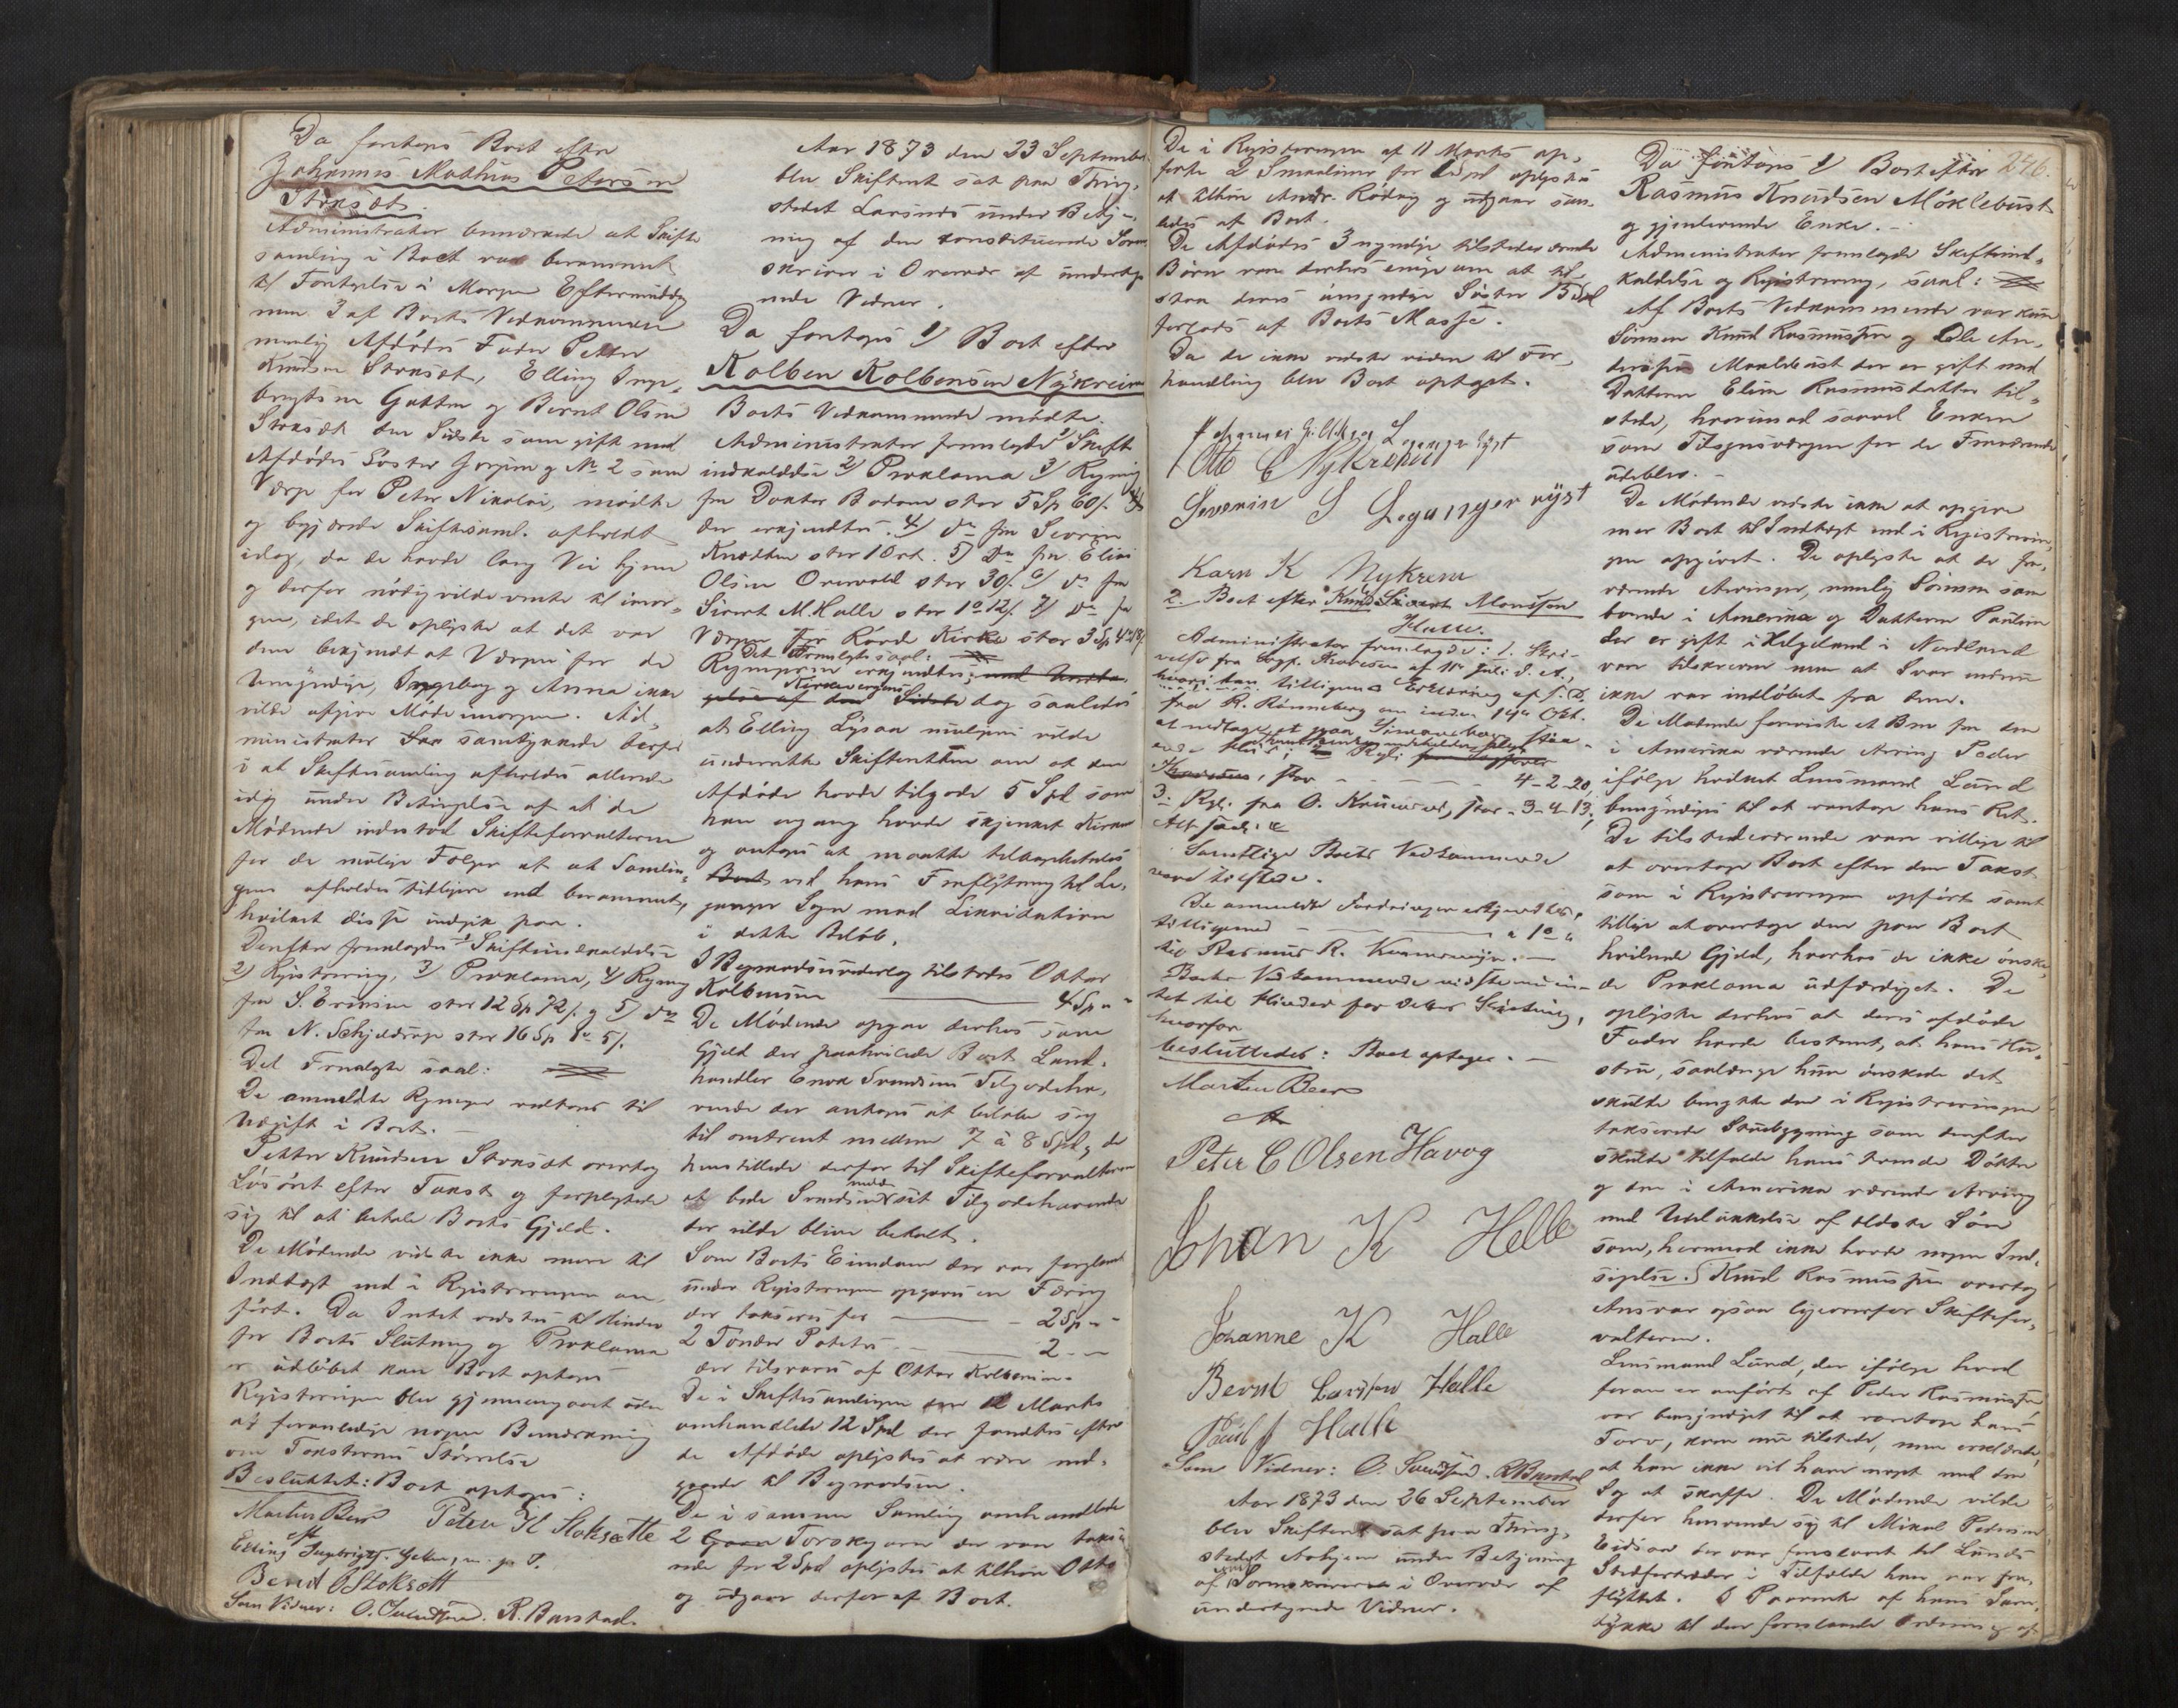 Da foretoges Boet efter
Johannes Mathias Petersen
Stoksæt.
Administrator bemærkede at Skifte
samling i Boet var berammet
til Foretagelse i Morgen Eftermiddag
men 3 af Boets Vedkommende
nemlig Afdødes Fader Petter
Knudsen Stoksæt, Elling Inge-
brigtsen Gjetten og Bernt Olsen
Stoksæt den Sidste som gift med
Afdødes Søster og No 2 som
Værge for Peter Nikolai, mødte
og begjærede Skiftesaml. afholdt
idag, da de havde lang Vei hjem
og derfor nødig vilde vente til imor-
gen, idet de oplyste at det var
dem bekjendt at Værgen for de
Umyndige, Ingeborg og Anna ikke
vilde afgive Møde imorgen. Ad-
ministrator samtykkede derfor
i at Skiftesamling afholdtes allerede
idag under Betingelse af at de
Mødende indestod Skifteforvalteren
for de mulige Følger af at Samlin-
gen afholdes tidligere end berammet,
hvilket disse indgik paa.
Derefter fremlagdes 1) Skifteindkaldelse
2) Registrering, 3) Proklama, 4) Regning
fra S. Eriksen stor 12 Sp 72 s. og 5) do
fra N. Schjeldrup stor 16 Sp 1 o 5 s.
Det Fremlagte saal:
De anmeldte Regninger vedtoges til
Udgift i Boet. —
Petter Knudsen Stoksæt overtog
Løsøret efter Taxt og forpligtede
sig til at betale Boets Gjæld.
De Mødende vidste ikke mere til
Indtægt end i Registreringen an-
ført. Da Intet vidstes til Hinder
for Boets Slutning og Proklama
er udløbet kan Boet optages
Registreringen blev gjennemgaaet uden
at foranledige nogen Bemærkning
om Taksternes Størrelse
Besluttet: Boet optages:
Martin Beer Peter K Stoksætte
Elling Ingebrigts. Gjetten, m. p. P.
Bernt O Stoksætt
Som Vidner: O. Svendsen. R. Barstad.
Aar 1873 den 23 September
blev Skifteret sat paa Thing-
stedet Larsnes under Betje-
ning af den constituerede Soren-
skriver i Overvær af underteg-
nede Vidner.
Da foretoges 1) Boet efter
Kolben Kolbensen Nykreim
Boets Vedkommende mødte.
Administrator fremlagde 1) Skifte-
indkaldelse 2) Proklama 3) Regning
fra Doktor Bodom stor 5 Sp 60 s.
der erkjendtes. 4) do fra Severin
Knudsen stor 1 Ort. 5) Do fra Eli
Olsen Overvold stor 30 s. 6) do fra
Sivert M. Halle stor 1 o 12 s. 7) do fra
Værgen for Rovde Kirke stor 3 Sp 4 o 18 s
Det Fremlagte saal:
Regningerne erkjendtes, med Undta-
gelse af den Sidste dog saaledes
at Elling Lysaa muligens vilde
underrette Skifteretten om at den
Afdøde havde tilgode 5 Spd som
han engang havde skjenket Kirken
og antoges at maatte tilbagebetales
Boet ved hans Fraflytning til Le-
ganger Sogn med Likvidation
i dette Beløb.
I Begravelsesudlæg tilstodes Ottar
Kolbensen — 4 Sp "
De Mødende opgav derhos som
Gjæld der paahvilede Boet Land-
handler Enok Svendsens Tilgodeha-
vende der antoges at beløbe sig
til omtrent mellem 7 à 8 Spd, de
henstillede derfor til Skifteforvalteren
at bede Svendsen melde sit Tilgodehavende
der vilde blive betalt.
Som Boets Eiendom der var forglemt
under Registreringen opgaves en Færing
der takseres for — 2 Sp "
2 Tønder Poteter — 2 - -
der tilsvares af Ottar Kolbensen.
De i Skiftesamlingen den 11 Marts
omhandlede 12 Spd der fandtes efter
de Afdøde oplystes at være med-
gaaede til Begravelsen.
De i samme Samling omhandlede
2 Garn Torskegarn der var takse-
rede for 2 Spd oplystes at tilhøre Otto
og udgaar derfor af Boet.
De i Registreringen af 11 Marts op-
førte 2 for 1 Spd oplystes
at tilhøre Andr. Rødsæg og udgaar saa-
ledes af Boet.
De Afdødes 3 myndige tilstedeværende
Børn var derhos enige om at til-
staa deres umyndige Søster 15 Spd
forlods af Boets Masse.
Da de ikke vidste videre til For-
handling blev Boet optaget.
Otto C Nykreim
Severin S Leganger
Karn K Nykrem
2. Boet efter Knud Sivert Monssøn
Halle.
Administrator fremlagde: 1. Skri-
velse fra Sogp. Thoresen af 10 Juli d. A.,
hvori han tilligemed Erklæring af s. D.
fra R. Rønneberg om inden 14de Okt.
4 - 2 - 20,
3. Regl. fra O. Knudsen, stor - 3 - 4 - 13,
Alt saal:
Samtlige Boets Vedkommende
vare tilstede.
De anmeldte Fordringer erkjendtes,
tilligemed — " 1 o "
til Rasmus R.
Boets Vedkommende vidste nu in-
tet til Hinder for dets Slutning,
hvorfor
besluttedes: Boet optages. —
Martin Beer
Peter C Olsen Havog
Johan K Helle
Johanne K Halle
Bernt Larssen Halle
Poul J Halle
Som Vidner: O. Svendsen. R Barstad
Aar 1873 den 26 September
blev Skifteret sat paa Thing-
stedet Aahjem under Betjening
af Sorenskriveren i Overvær af
undertegnede Vidner.
246.
Da foretoges 1) Boet efter
Rasmus Knudsen Møklebust
og gjenlevende Enke. —
Administrator fremlagde Skifteind-
kaldelse og Registrering, saal:
Af Boets Vedkommende var kun
Sønnen Knud Rasmussen og Ole An-
dersen Maalebust der er gift med
Datteren Eline Rasmusdatter til-
stede, hvorimod saavel Enken
som Tilsynsværgen for de Fraværende
udeblev. —
De Mødende vidste ikke at opgive
mer Boet til Indtægt end i Registrerin-
gen opgivet. De oplyste at de fra-
værende Arvinger, nemlig Sønnen som
boende i Amerika og Datteren Pauline
der er gift i Helgeland i Nordland
var tilskrevne men at Svar endnu
ikke var indløbet fra dem.
De Mødende foreviste et Brev fra den
i Amerika værende Arving Peder
ifølge hvilket Lensmand Lund
bemyndiges til at varetage hans Ret.
De tilstedeværende var villige til
at overtage Boet efter den Takst
som i Registreringen opført samt
tillige at overtage den paa Boet
hvilende Gjæld, hvorhos de ikke ønske-
de Proklama udfærdiget. De
oplyste derhos at deres afdøde
Fader havde bestemt, at hans Hu-
stru, saalænge hun ønskede det
skulde benytte den i Registreringen
takserede Stuebygning som derefter
skulde tilfalde hans Døtre
og den i Amerika værende Arving
med Udelukkelse af ældste Søn
som, hvorimod ikke havde nogen Ind-
sigelse. Knud Rasmussen overtog
Ansvar ogsaa ligeoverfor Skiftefor-
valteren.
Lensmand Lund, der ifølge hvad
foran er anført af Peder Rasmussen
var bemyndiget til at varetage hans
Tarv, kom nu tilstede, men erklærede,
at han ikke vil have noget med den
Sag at skaffe. De Mødende vilde
derfor henvende sig til Mikal Pedersen
Eidsaa der var foreslaaet til Lunds
Stedfortræder i Tilfælde han var fra-
flyttet. I Paavente af hans Sam-
tykke til den foreslaaede Ordning af